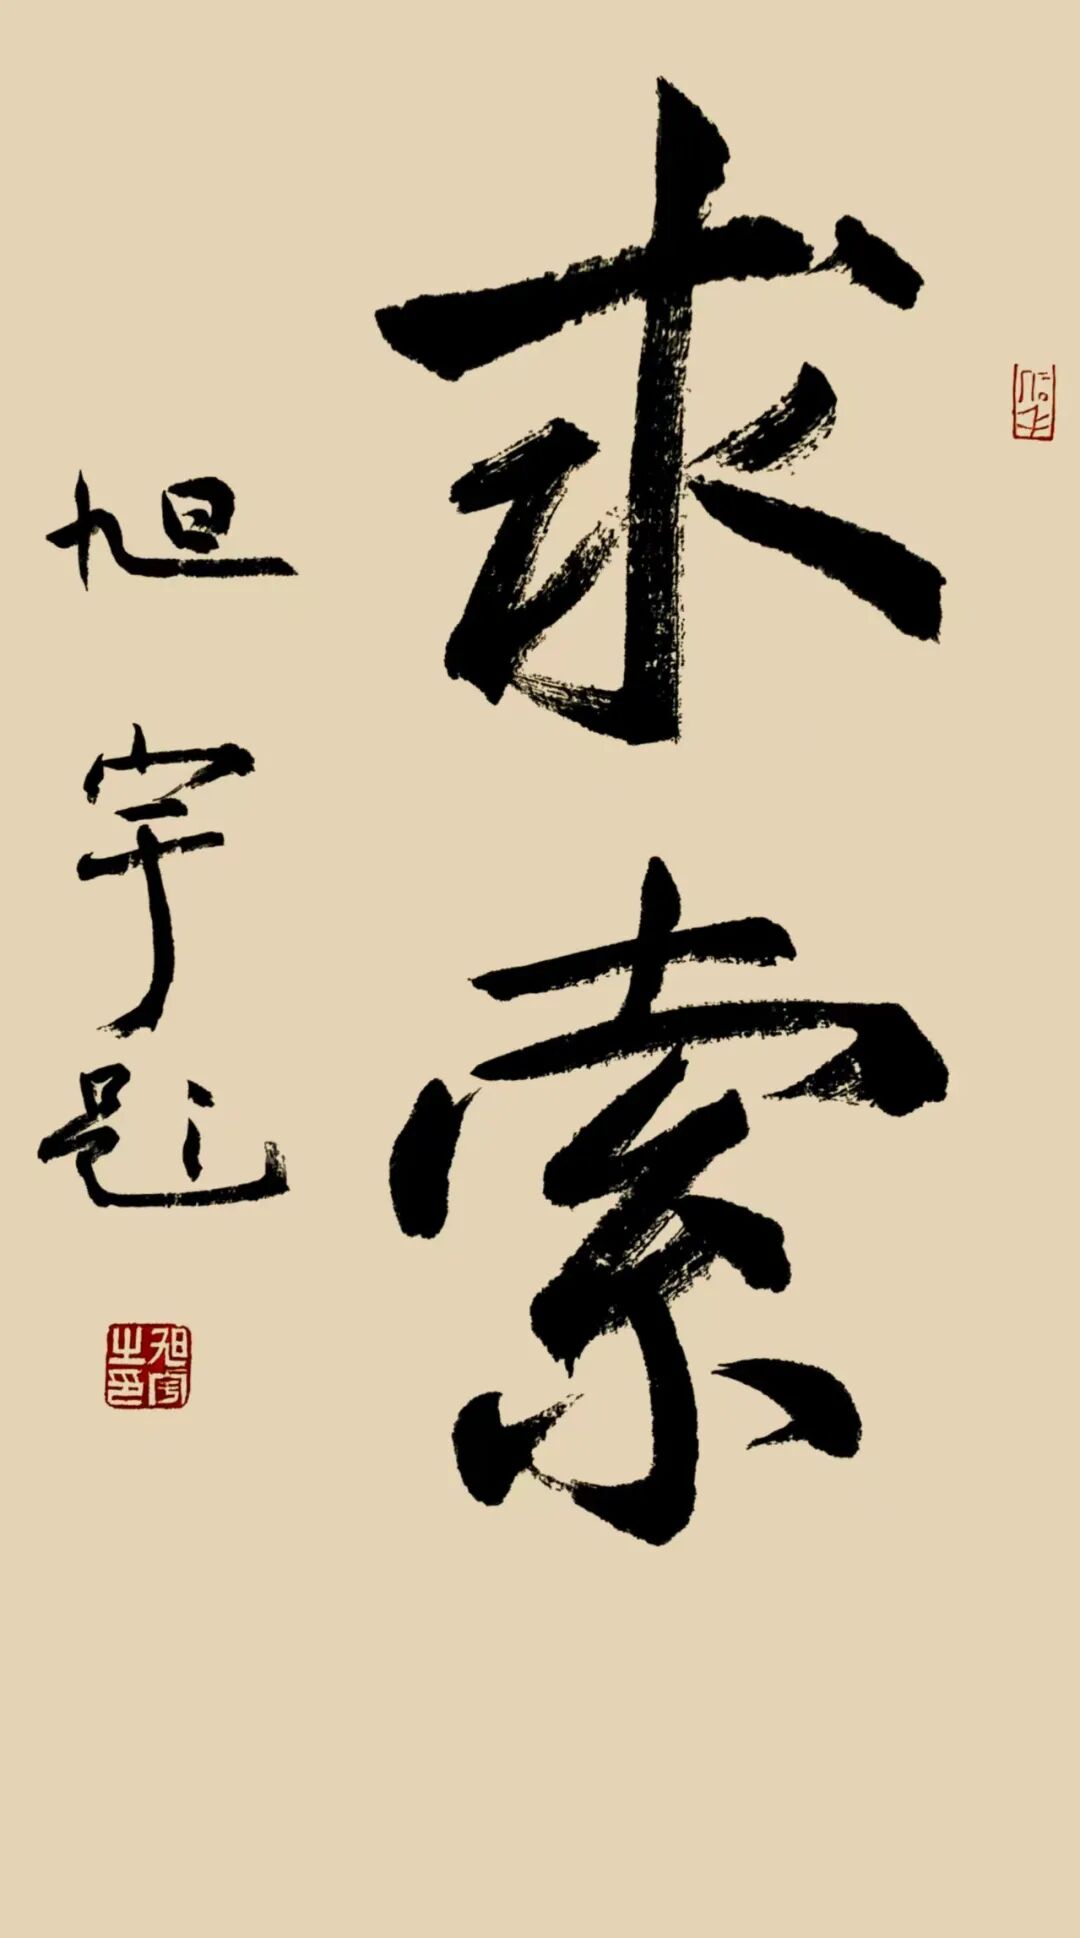 求索
旭宇题
旭宇之印